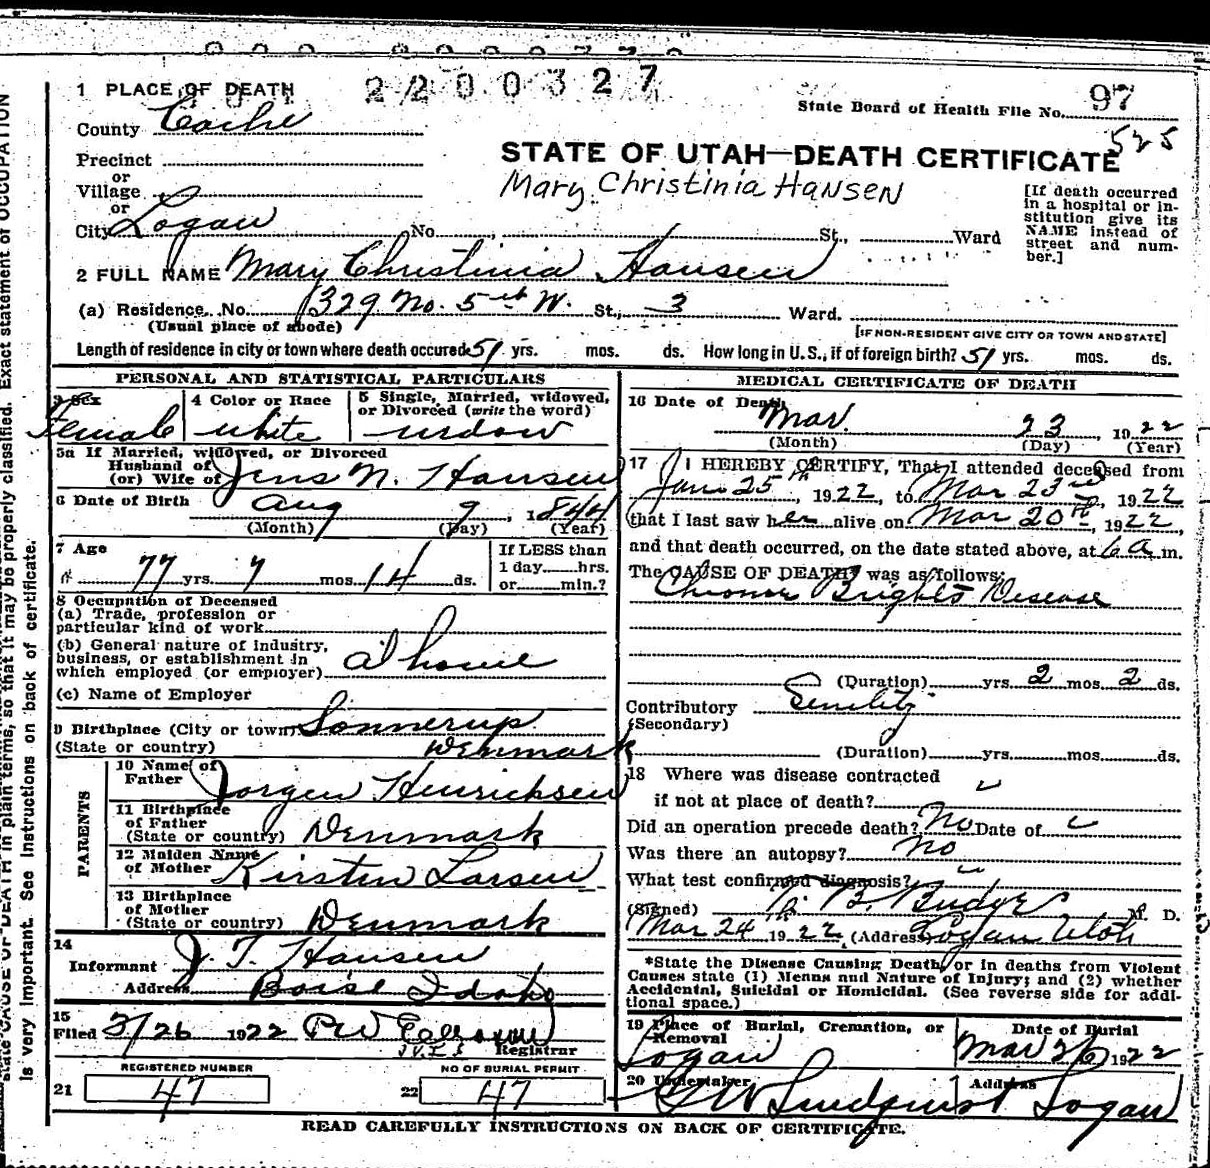 2200327
1 PLACE OF DEATH
State Board of Health File No. 97
525
County Cache
STATE OF UTAH—DEATH CERTIFICATE
Mary Christinia Hansen
Precinct
or
Village
or
City Logan No. St., Ward
[If death occurred
in a hospital or in-
stitution give its
NAME instead of
street and num-
ber.]
2 FULL NAME Mary Christinia Hansen
(a) Residence. No. 329 No. 5th W. St., 3 Ward.
(Usual place of abode)
[IF NON-RESIDENT GIVE CITY OR TOWN AND STATE]
Length of residence in city or town where death occured 51 yrs. mos. ds. How long in U. S., if of foreign birth? 51 yrs. mos. ds.
PERSONAL AND STATISTICAL PARTICULARS
3 Sex
Female
4 Color or Race
white
5 Single, Married, widowed,
or Divorced (write the word)
widow
5a If Married, widowed, or Divorced
Husband of
(or) Wife of Jens N. Hansen
6 Date of Birth Aug 9, 1844
(Month) (Day) (Year)
7 Age
77 yrs. 7 mos. 14 ds.
If LESS than
1 day hrs.
or min.?
8 Occupation of Deceased
(a) Trade, profession or
particular kind of work
(b) General nature of industry,
business, or establishment in
which employed (or employer) at home
(c) Name of Employer
9 Birthplace (City or town) Sonnerup
(State or country) Denmark
PARENTS
10 Name of
Father Jorgen Hinrichsen
11 Birthplace
of Father
(State or country) Denmark
12 Maiden Name
of Mother Kirsten Larsen
13 Birthplace
of Mother
(State or country) Denmark
14
Informant J. T. Hansen
Address Boise Idaho
15
Filed 3/26 1922 PW
Registrar
REGISTERED NUMBER
21 47
NO OF BURIAL PERMIT
22 47
MEDICAL CERTIFICATE OF DEATH
16 Date of Death
Mar. 23, 1922
(Month) (Day) (Year)
17 I HEREBY CERTIFY, That I attended deceased from
Jan 25th, 1922, to Mar 23rd, 1922
that I last saw her alive on Mar 20th, 1922,
and that death occurred, on the date stated above, at 6 a m.
The CAUSE OF DEATH* was as follows:
Chronic Brights Disease
(Duration) yrs. 2 mos. 2 ds.
Contributory Senility
(Secondary)
(Duration) yrs. mos. ds.
18 Where was disease contracted
if not at place of death?
Did an operation precede death? No Date of
Was there an autopsy? no
What test confirmed diagnosis?
(Signed) B. Budge M. D.
Mar 24th 1922, (Address) Logan Utah
*State the Disease Causing Death, or in deaths from Violent
Causes state (1) Menns and Nature of Injury; and (2) whether
Accidental, Suicidal or Homicidal. (See reverse side for addi-
tional space.)
19 Place of Burial, Cremation, or
Removal
Logan
Date of Burial
Mar 26 1922
20 Undertaker
Lindquist
Address
Logan
READ CAREFULLY INSTRUCTIONS ON BACK OF CERTIFICATE.
state CAUSE OF DEATH in plain terms, so that it may be properly classified. Exact statement of OCCUPATION
is very important. See instructions on back of certificate.